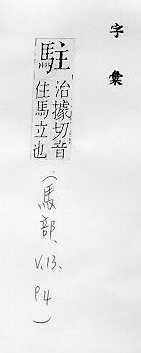 字彙
駐
治據切音
住馬立也
(馬部,
V.13,
P4)